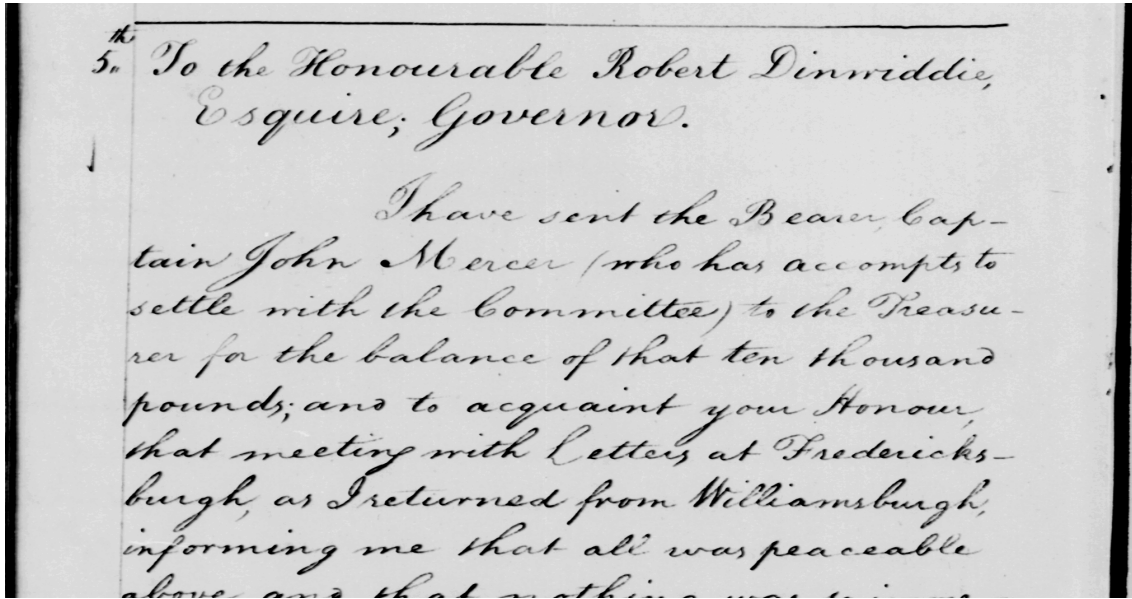 th
5." To the Honourable Robert Dinwiddie,
Esquire; Governor.
I have sent the Bearer, Cap-
tain John Mercer (who has accompts to
settle with the Committee) to the Treasu-
rer for the balance of that ten thousand
pounds; and to acquaint your Honour,
that meeting with Letters at Fredericks-
burgh, as I returned from Williamsburgh,
informing me that all was peaceable
above, and that nothing was